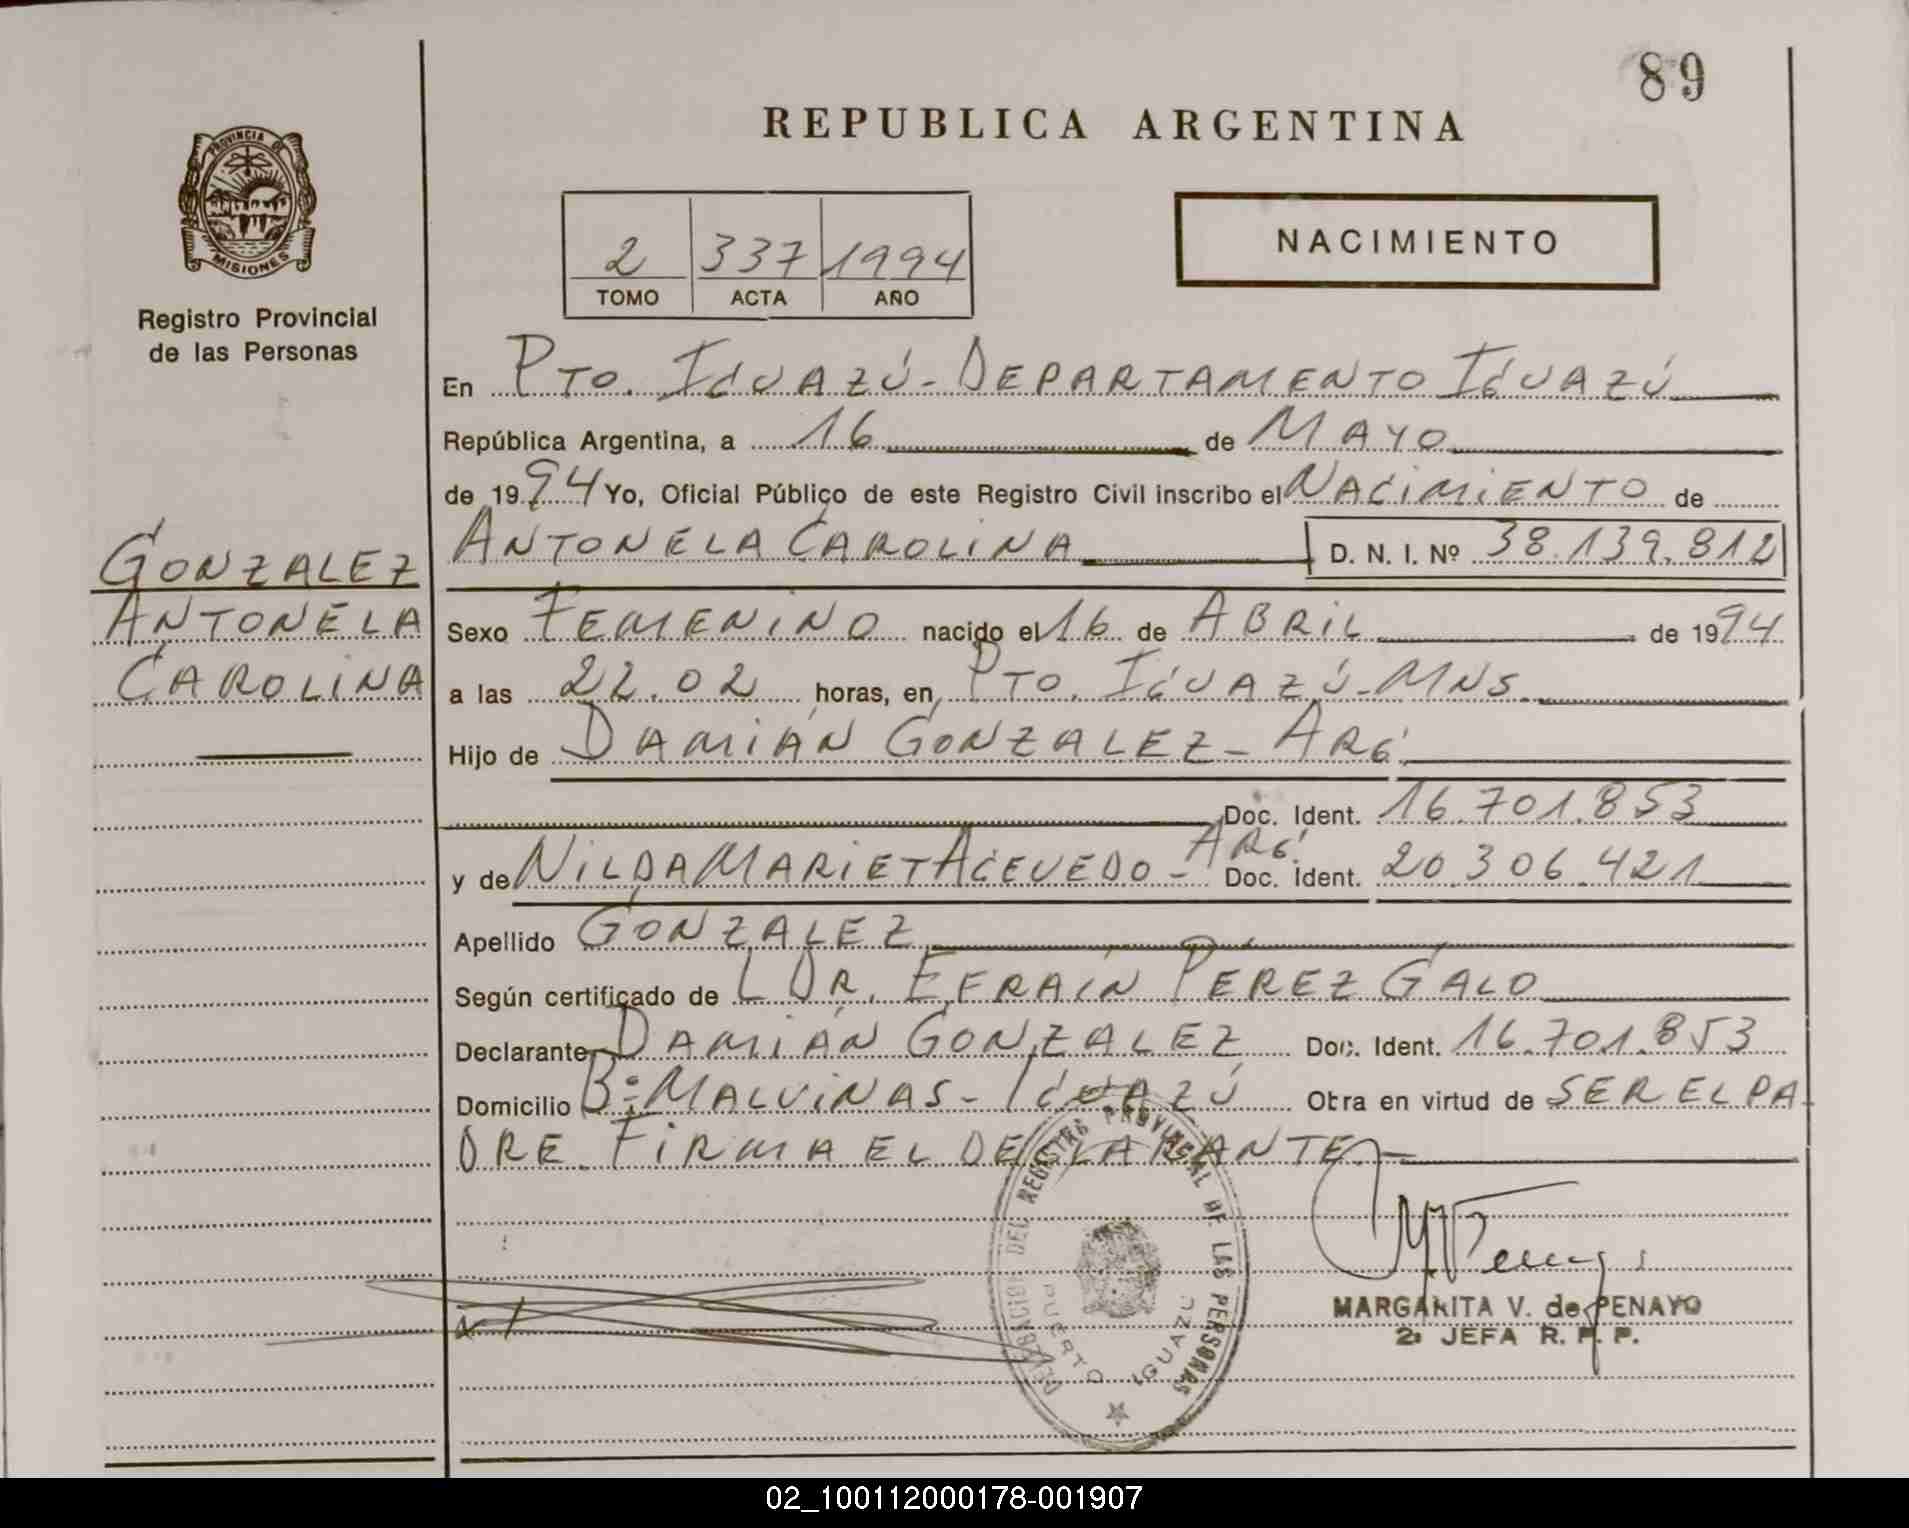 89
REPUBLICA ARGENTINA
PROVINCIA DE
MISIONES
Registro Provincial
de las Personas
NACIMIENTO
2 337 1994
TOMO ACTA AÑO
En PTO. IGUAZÚ - DEPARTAMENTO IGUAZÚ
República Argentina, a 16 de MAYO
de 1994 Yo, Oficial Público de este Registro Civil inscribo el NACIMIENTO de
ANTONELA CAROLINA D. N. I. Nº 38.139.812
GONZALEZ
ANTONELA
CAROLINA
Sexo FEMENINO nacido el 16 de ABRIL de 1994
a las 22.02 horas, en PTO. IGUAZÚ - MNS.
Hijo de DAMIÁN GONZALEZ - ARG.
Doc. Ident. 16.701.853
y de NILDA MARIET ACEVEDO - ARG. Doc. Ident. 20.306.421
Apellido GONZALEZ
Según certificado de L DR. EFRAÍN PEREZ GALO
Declarante DAMIÁN GONZALEZ Doc. Ident. 16.701.853
Domicilio Bº MALVINAS - IGUAZÚ Obra en virtud de SER EL PA
DRE. FIRMA EL DECLARANTE.
DELEGACION DEL REGISTRO PROVINCIAL DE LAS PERSONAS
PUERTO IGUAZU
MARGARITA V. de PENAYO
2ª JEFA R. P. P.
02_100112000178-001907